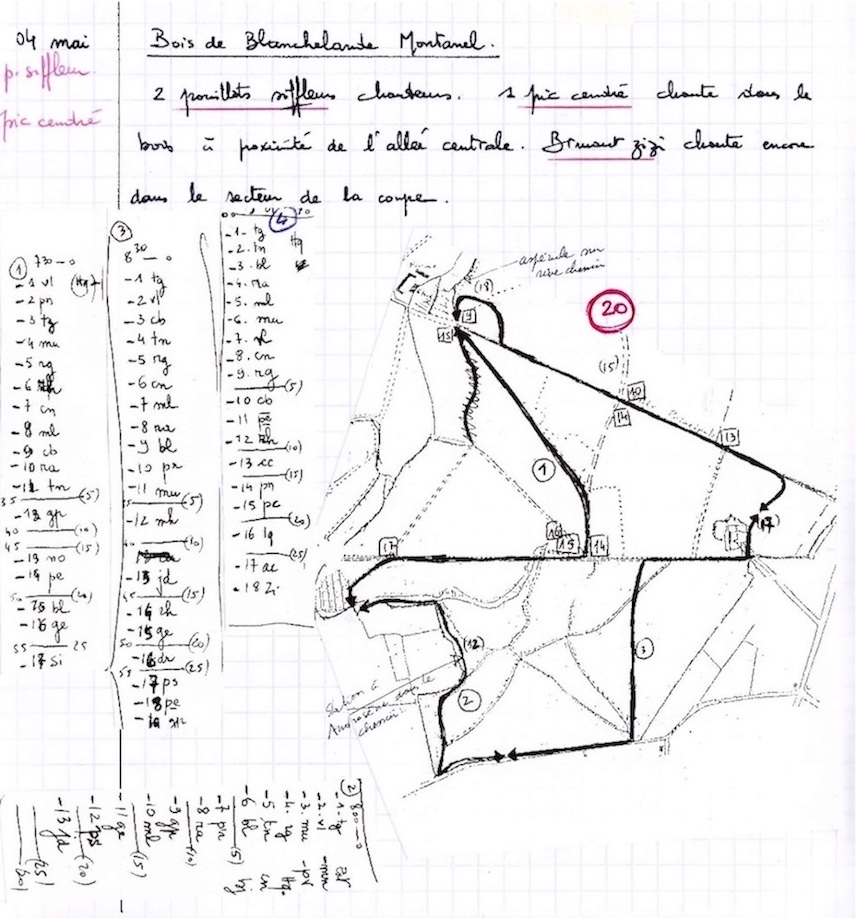 04 mai
Bois de Blanchelande Montanel.
p. siffleur
pic cendré
2 pouillots siffleurs chanteurs. 1 pic cendré chante dans le
bois à proximité de l'allée centrale. Bruant zizi chante encore
dans le secteur de la coupe.
1
7 30 - 0
-1 vl
-2 pn
-3 tg
-4 mu
-5 rg
-7 cn
-8 ml
-9 cb
-10 ra
-11 tn
35 (5)
-12 gp
40 (10)
45 (15)
-13 no
-14 pe
50 (20)
-15 bl
-16 ge
55 25
-17 si
3
8 30 - 0
-1 tg
-2 vl
-3 cb
-4 tn
-5 rg
-6 cn
-7 ml
-8 ra
-9 bl
-10 pn
-11 mu
(5)
-12 mh
40 (10)
-13 jd
45 (15)
-14 rh
-15 ge
50 (20)
-16 dr
55 (25)
-17 ps
-18 pe
4
-1- tg
-2. tn
-3. bl
-4. ra
-5. ml
-6. mu
-7.
-8. cn
-9. rg
(5)
-10 cb
-11 pe
-12 rh
(10)
-13 cc
(15)
-14 pn
-15 pc
(20)
-16 lq
(25)
-17 ac
-18 Zi
aspérule sur
rive chemin
(18)
20
19
18
(15)
10
14
13
(17)
1
17
16
15
14
3
(12)
2
Station à
Androsème dans le
chemin
2
8 00 - 0
-1- tg
-2- vl
-3. mu
-4. rg
-5 tn cn
-6 bl
(5)
-7 pn
-8 ra
(10)
-9 gp
-10 ml
(15)
-11 ge
-12 ps
(20)
-13 jd
(25)
(30)